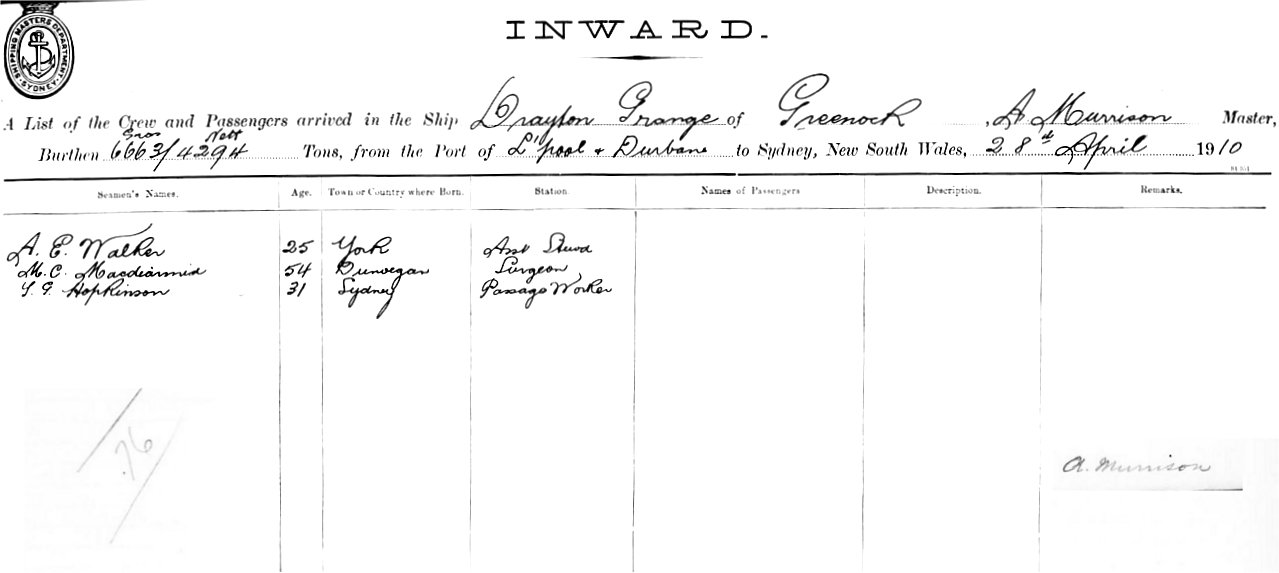 SHIPPING MASTERS DEPARTMENT. SYDNEY.
INWARD.
A List of the Crew and Passengers arrived in the Ship Drayton Grange of Greenock, A Murrison Master,
Gros Nett
Burthen 6663/4294 Tons, from the Port of L'pool & Durbane to Sydney, New South Wales, 28st April 1910
Seamen's Names. Age. Town or Country where Born. Station. Names of Passengers Description. Remarks.
A. E. Walker 25 York Asst Stewd
M. C. Macdiarmid 54 Dunvegan Surgeon
Hopkinson 31 Sydney Passage Worker
76
A. Murrison